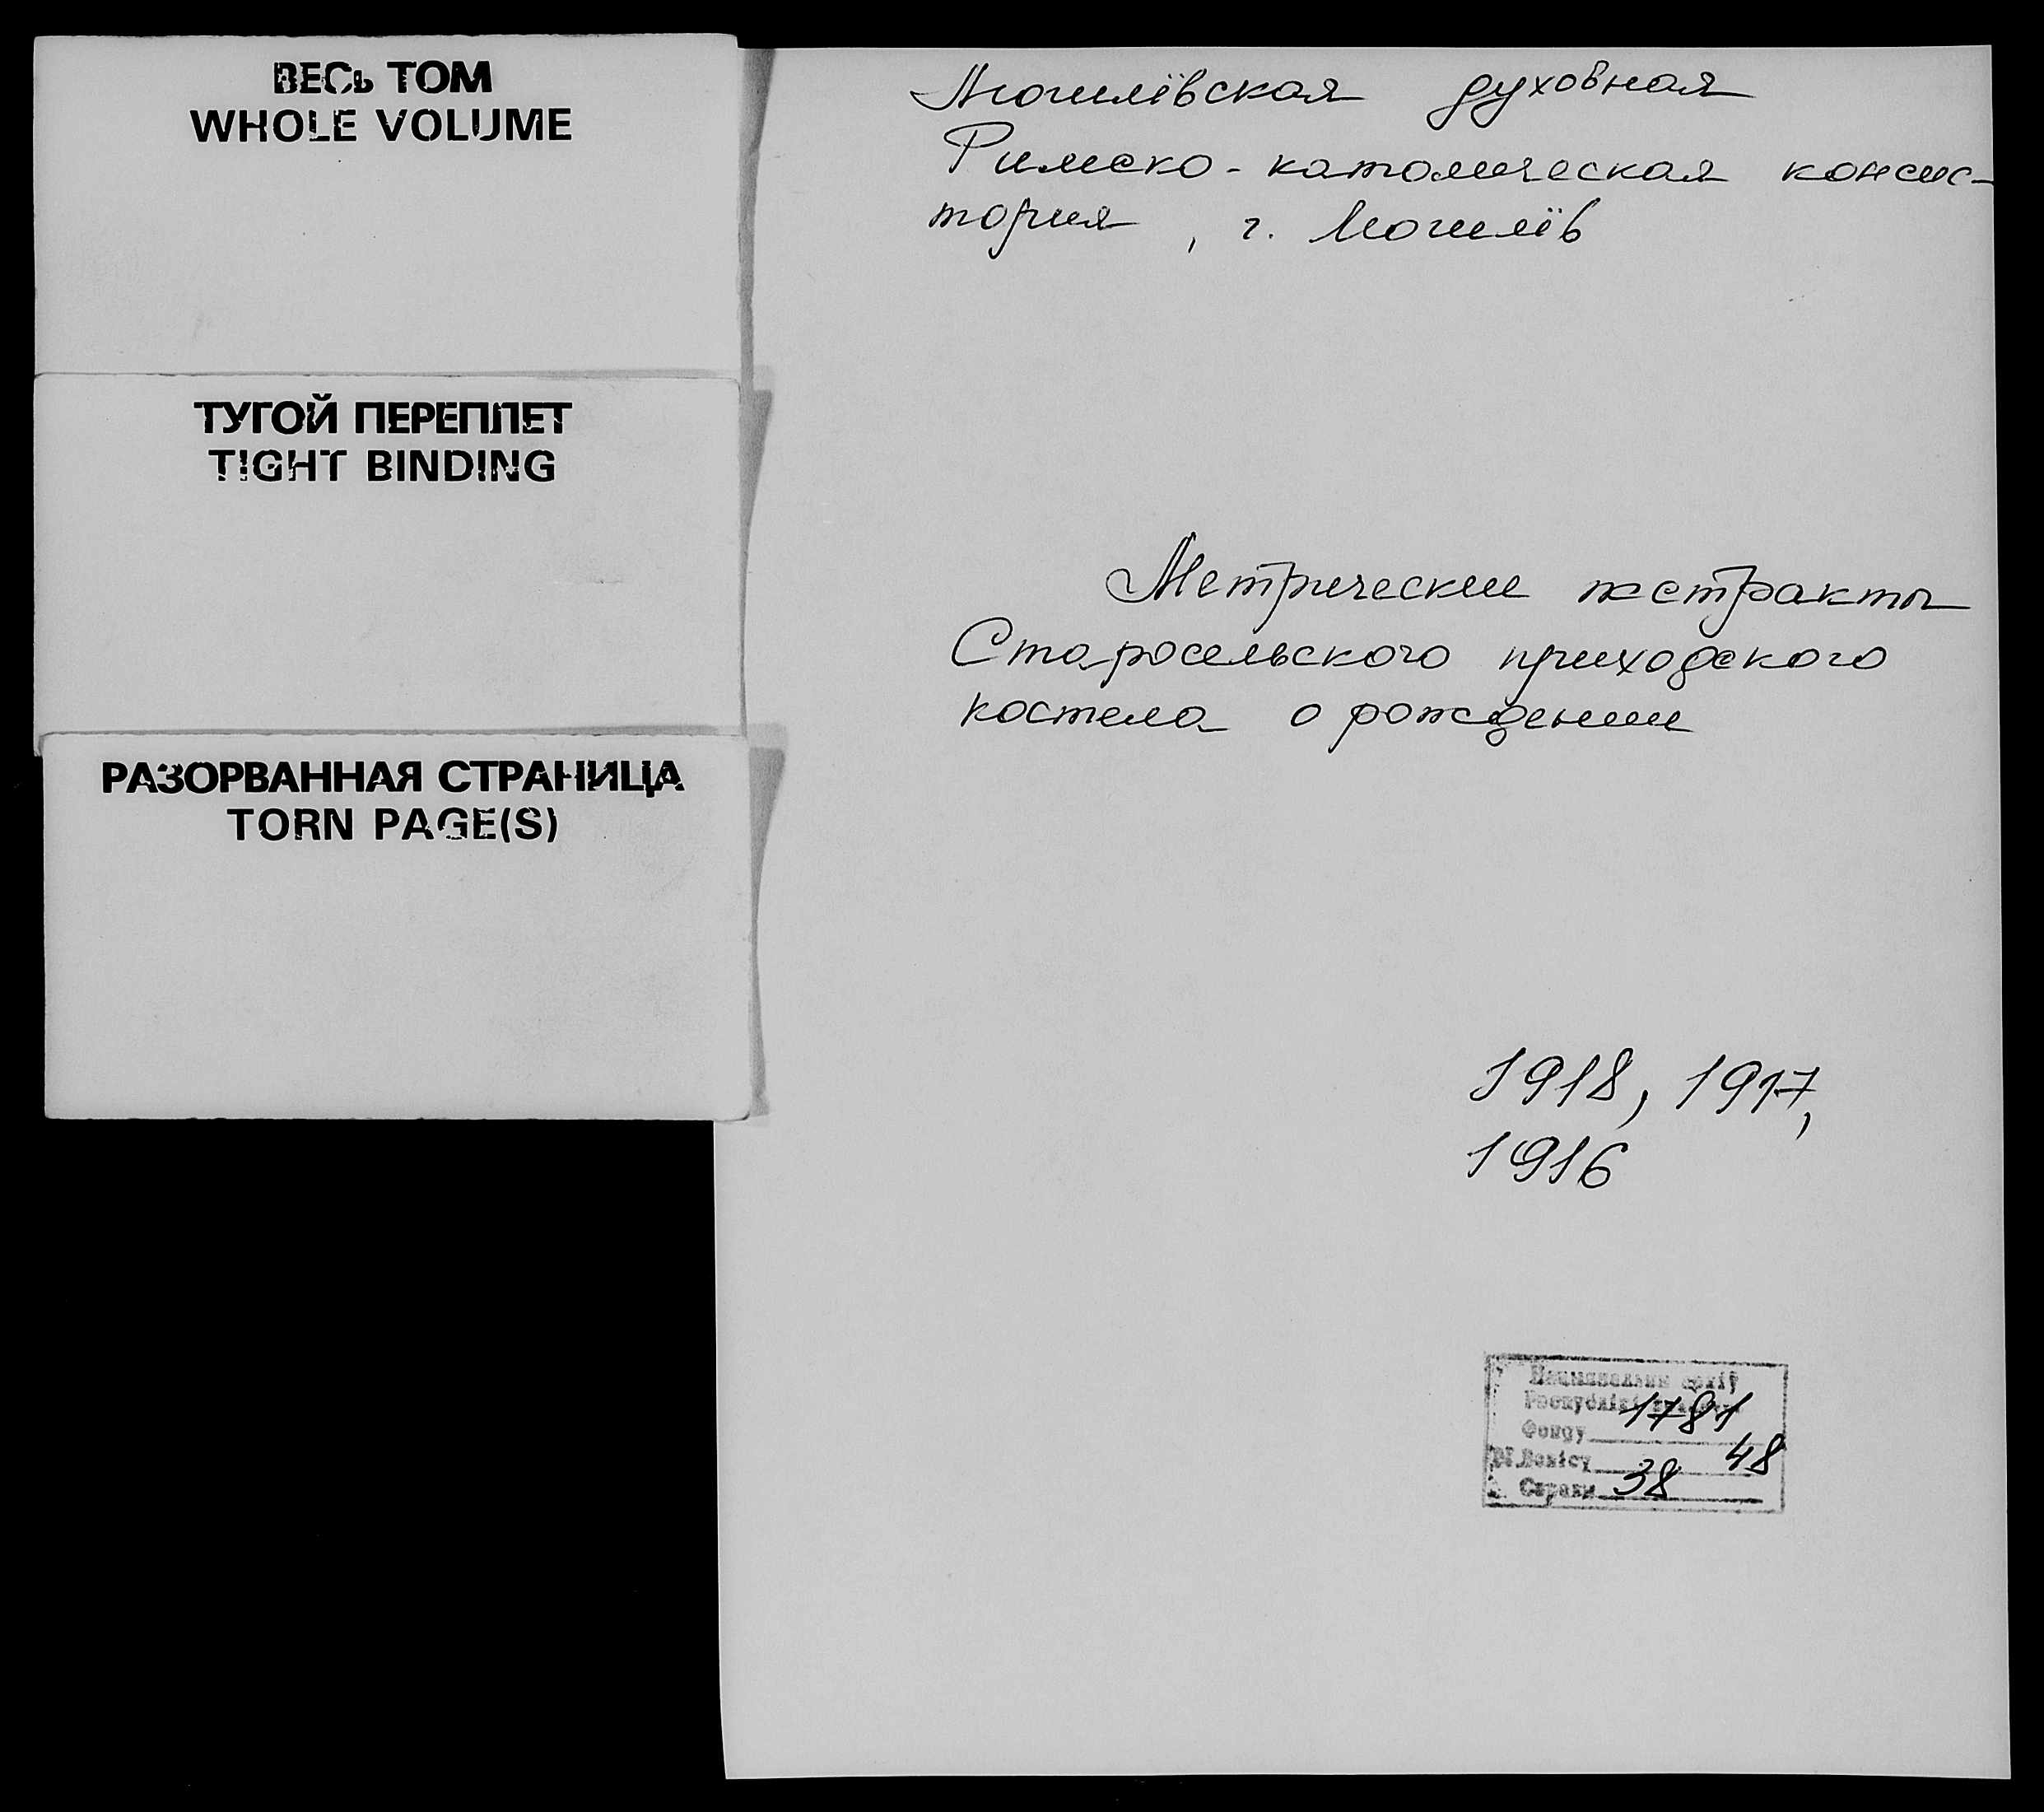 ВЕСЬ ТОМ
WHOLE VOLUME
ТУГОЙ ПЕРЕПЛЕТ
TIGHT BINDING
РАЗОРВАННАЯ СТРАНИЦА
TORN PAGE(S)
Могилёвская духовная
Римско-католическая консис-
тория, г. Могилёв
Метрические экстракты
Старосельского приходского
костела о рождении
1918, 1917,
1916
Нацыянальны архіў
Рэспублікі 1781
Фонду
№ Вопісу 48
Справы 38